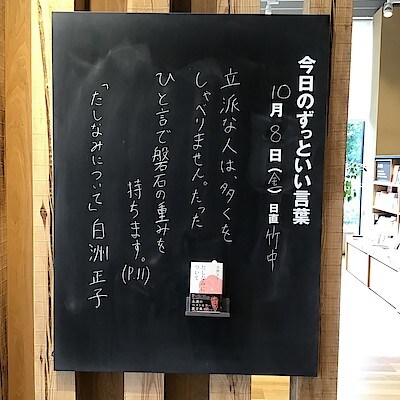 今日のずっといい言葉
10月8日(金) 日直 竹中
立派な人は、多くを
しゃべりません。たった
ひと言で磐石の重みを
持ちます。
(P.11)
「たしなみについて」白洲正子